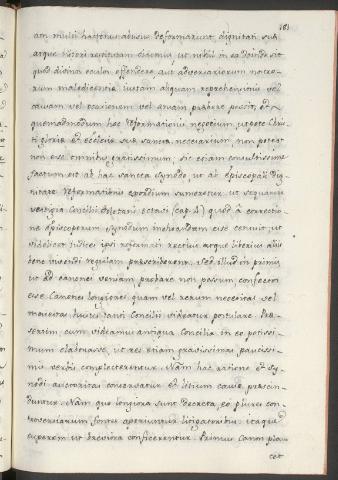 181
ut nihil in ea deinde sit
quod divinos oculos offendere, aut adversariorum nostro-
rum maledicentiæ iustam aliquam reprehensionis vel
causam vel occasionem vel ansam præbere possit, Et
quemadmodum hoc Reformationis negotium, utpote Chri-
sti gloriæ et ecclesiæ suæ necessarium, non potest
non esse omnibus gratissimum; sic etiam consultissime
factum est ab hac sancta Synodo, ut ab Episcopali dig-
nitate Reformationis exordium sumeretur, ut sequamur
vestigia Concilii Toletani (cap. 4) quod à correctio-
ne Episcoporum Synodum inchoandam esse censuit, ut
videlicet Judices ipsi reformati rectius atque liberius aliis
bene vivendi regulam præscriberent. Sed illud in primis,
ut ad canones veniam, probare non possum, confectos
esse Canones longiores, quam vel rerum necessitas vel
maiestas huius sancti Concilii videatur postulare. Præ-
sertim, cum videamus antiqua Concilia in eo potissi-
mum elaborasse, ut res etiam gravissimas paucissi-
mis verbis complecterentur. Nam hac ratione et Sy-
nodi auctoritas conservatur et litium causæ præscin-
duntur. Nam quo longiora sunt Decreta, eo plures con-
troversiarum fontes aperiuntur litigatoribus. itaque
cuperem ut breviora conficerentur. Primus Canon pla-
cet